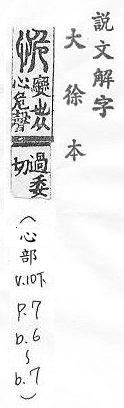 說文解字
大徐本
恑
變也从
心危聲
過委
切
(心部
V.10下
P.7
b.6
~
b.7
)